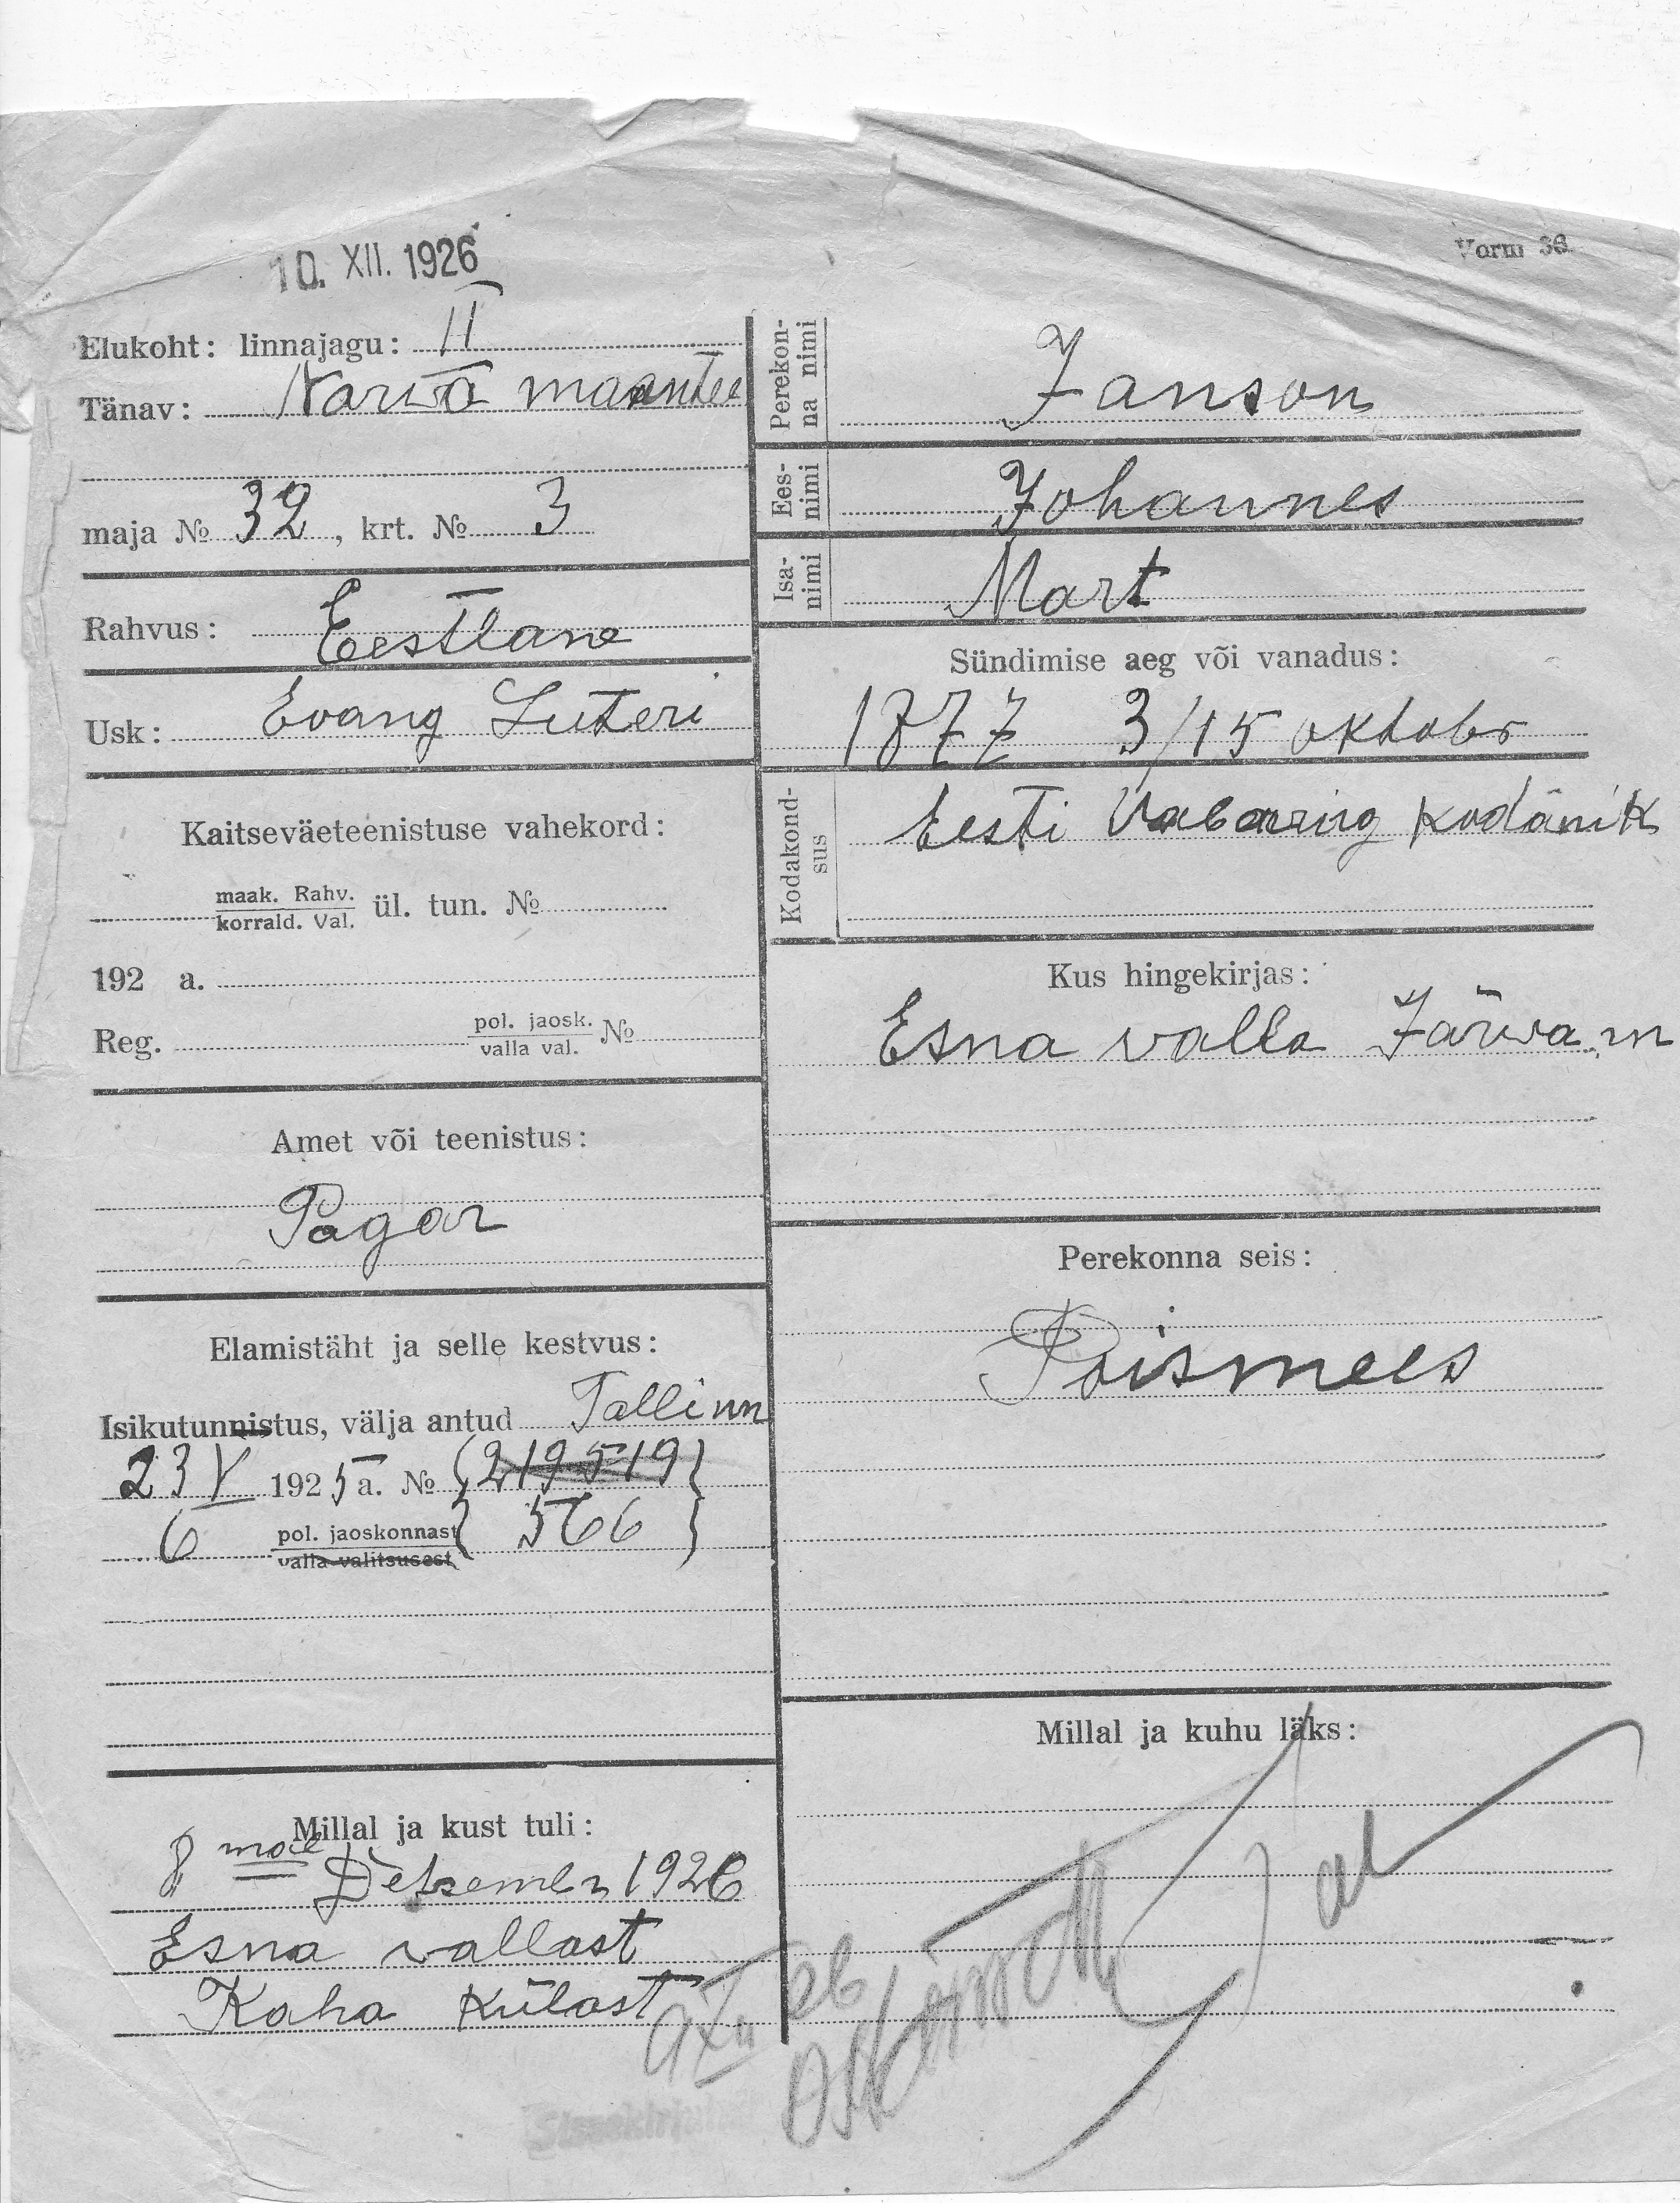 10. XII. 1926
Vorm 36
Elukoht: linnajagu: II
Tänav: Narva maantee
maja № 32, krt. № 3
Rahvus: Eestlane
Usk: Evang Luteri
Kaitseväeteenistuse vahekord:
maak. Rahv.
korrald. Val. ül. tun. №
192 a.
Reg. pol. jaosk.
valla val. №
Amet või teenistus:
Pagar
Elamistäht ja selle kestvus:
Isikutunnistus, välja antud Tallinn
23 V 1925 a. № (219519)
6 pol. jaoskonnast { 566 }
valla valitsusest
Millal ja kust tuli:
8 mal Detsember 1926
Esna vallast
Kaha külast
Perekonna nimi
Janson
Eesnimi
Johannes
Isanimi
Mart
Sündimise aeg või vanadus:
1877 3/15 oktobr
Kodakondsus
Eesti Vabariig kodänik
Kus hingekirjas:
Esna valla Järva m
Perekonna seis:
Poismees
Millal ja kuhu läks: